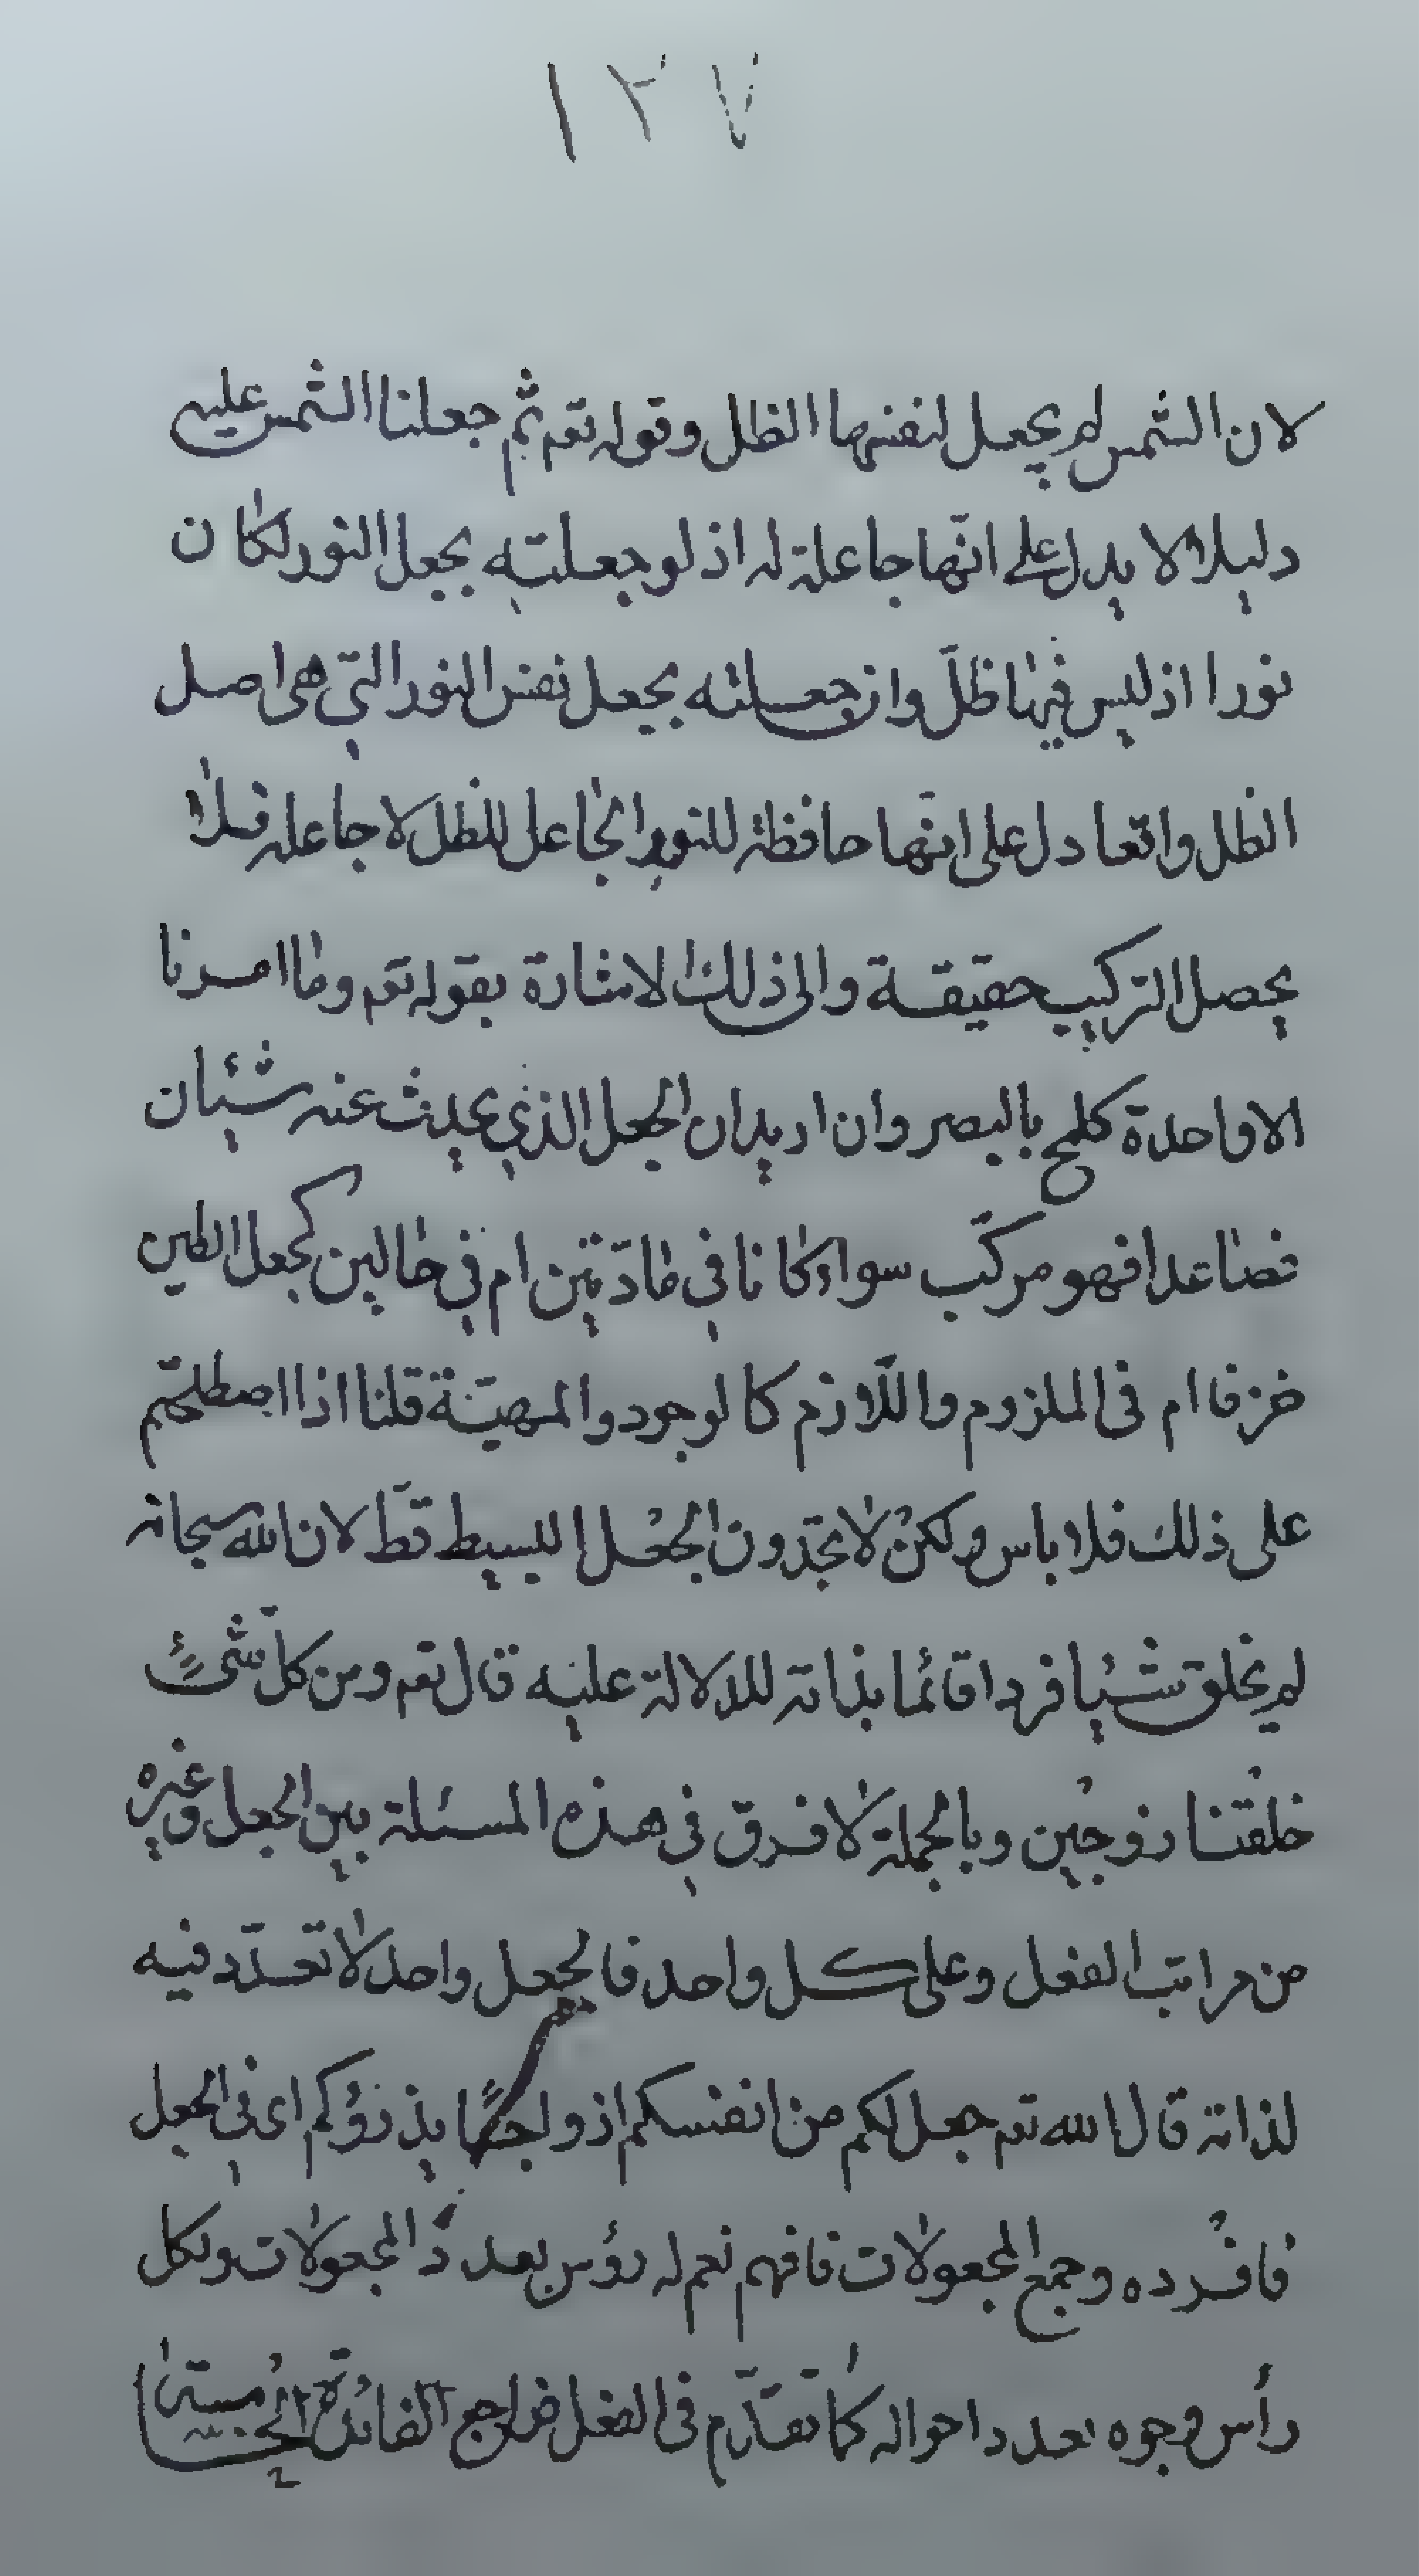 ١٣٧
لان الشمس لم يجعل لنفسها الظل وقوله تعم ثم جعلنا الشمس عليه
دليلا لا يدل على انّها جاعلة له اذ لو جعلته بجعل النور لكان
نورا اذ ليس فيها ظلّ وان جعلته بجعل نفس النور التي هى اصل
الظل وانّما دل على انّها حافظة للنور الجاعل للظل لا جاعله فلا
يحصل التركيب حقيقة والى ذلك الاشارة بقوله تعم وما امرنا
الا واحدة كلمح بالبصر وان اريد ان الجعل الذي يحدث عنه شيئان
فصاعدا فهو مركّب سواء كانا في مادّتين ام في حالين كجعل الطين
خزفا ام فى الملزوم واللّازم كالوجود والمهيّة قلنا اذا اصطلحتم
على ذلك فلا باس ولكن لا تجدون الجعل البسيط قطّ لان الله سبحانه
لم يخلق شيئا فردا قائما بذاته للدلالة عليه قال تعم ومن كلّ شئ
خلقنا زوجين وبالجملة لا فرق في هذه المسئلة بين الجعل وغيره
من مراتب الفعل وعلى كل واحد فالجعل واحد لا تعدّد فيه
لذاته قال الله تعم جعل لكم من انفسكم ازواجا يذرؤكم اى في الجعل
فافرده وجمع المجعولات فافهم نعم له رؤس بعدد المجعولات ولكل
رأس وجوه بعدد احواله كما تقدّم فى الفعل فراجع الفائدة الخامسة